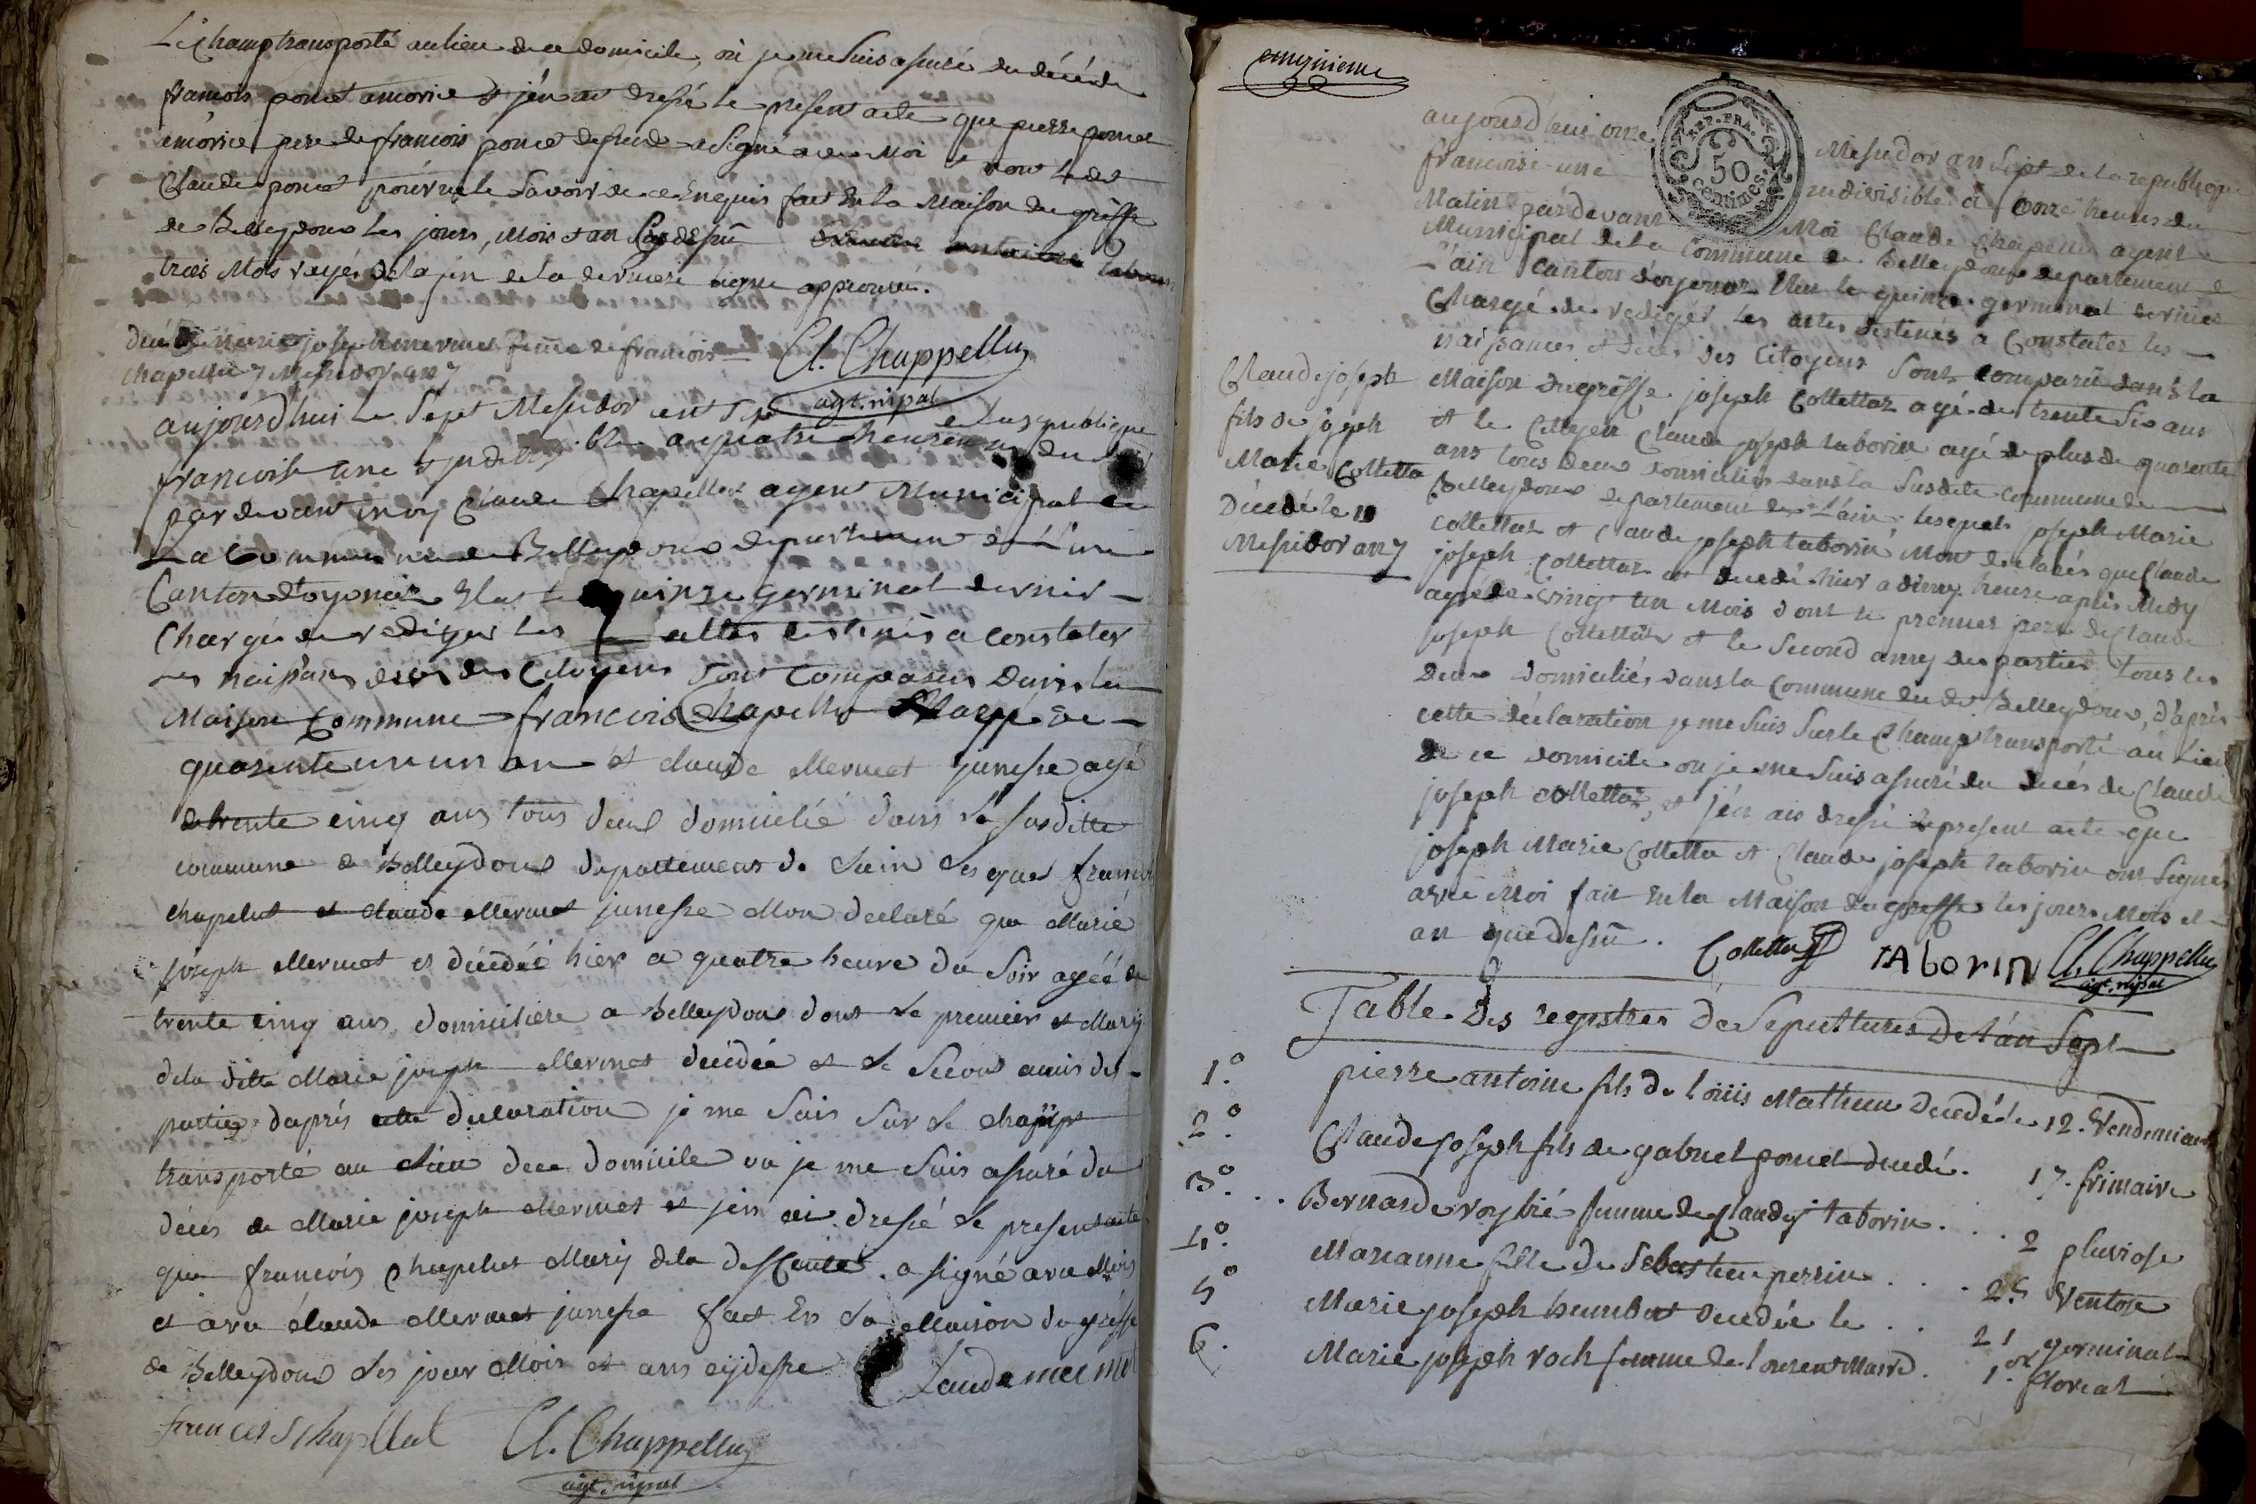 Le Champ transporté au lieu de ce domicile, où je me suis assuré du décès de
francois poncet amorice et j'en ait dressé le present acte que pierre poncet
emorice pere de francois poncet defunt a signé avec Moi et non
Claude poncet pour ne le savoir de ce Enquis fait En la Maison du greffe
de Belleydoux les jours, Mois et an susdessû
trois Mots rayés de la fin de la derniere ligne approuvé.
Cl. Chappelluz
agt. nipal
décé de marie joseph mermet feme de francois
chapellu 7 Messidor an 7
aujourd'hui le Sept Messidor ent sept de la republique
francoise une et indivisible a quatre heures du
pardevant moy Claude Chapellus agent Municipal de
La Commune de Belleydoux departement de L'ain
Canton d'oyonaz Elus le quinze germinal dernier
Chargé de rediger les actes destinés a constater
Les naissances deces des Citoyens sont comparus dans la
Maison Commune francois Chapellu agé de
quarente un an et claude Mermet junesse agé
de trente cinq ans tous deux domicilié dans la susditte
commune de Belleydoux departement de L'ain Lesquel francois
chapelut et claude Mermet junesse Mon declaré que Marie
joseph Mermet es décédéé hier a quatre heure du Soir agéé de
trente cinq ans domiciliere a Belleydoux dont Le premier et Mary
dela ditte Marie joseph Mermet decédéé et Le Second amis des
parties d'aprés cette declaration je me Suis Sur Le champs
transporté au Lieu dece domicile ou je me Suis assuré du
décés de Marie joseph Mermet et jen ai dressé Le present acte
que francois Chapelut Mary dela deffunte a signé avec Mois
et avec claude Mermet junesse fait En La Maison du greffe
de Belleydoux Les jour Mois et ans cydesse Claude mermet
frances Chapllut Cl. Chappelluz
agt. nipal
cinquieme
REP. FRA.
50
centimes.
aujourd'huui onze Messidor an sept de la republique
francoise une indivisible a onze heures du
Matin pardevant Moi Claude Chapellu agent
Municipal de la Commune de Belleydoux departement de
L'ain Canton d'oyonaz Elu le quinze germinal dernier
Chargé de rediger les actes destinés a Constater les
naissances et décés des Citoyens sont comparû dans la
Maison du greffe joseph Collettaz agé de trente six ans
et le Citoyen Claude joseph taborin agé de plus de quarente
ans tous deux domicilies dans la Susdite commune de
Belleydoux departement de L'ain lesquels joseph Marie
Collettaz et Claude joseph taborin Mont declarés que Claude
joseph Collettaz est decedé hier a dimy heure après Midy
agé de vingt un Mois dont le premier pere de Claude
joseph Collettaz et le Second amy des parties tous les
deux domiciliés dans la Commune du dit Belleydoux, d'après
cette déclaration je me suis sur le Champ transporté au Lieu
de ce domicile ou je me suis assuré du decés de Claude
joseph Collettaz, et j'en ais dressé le present acte que
joseph Marie Colletta et Claude joseph taborin ont signés
avec Moi fait en la Maison du greffe les jours Mois et
an que dessû.
Claude joseph
fils de joseph
Marie Colletta
Décédé le 10
Messidor an 7
Colletta tABoriN Cl. Chappelluz
agt. nipal
Table Des registres De Sepultures De l'an Sept
1.° pierre antoine fils de loüis Mathieu decedé le 12. Vendemiaire
2.° Claude joseph fils de gabriel poncet decedé. 17. frimaire
3.° Bernarde roybié femme de Claude j. taborin. 2 pluviose
4.° Marianne fille de Sebastien perrin . . . 25 Ventose
5° Marie joseph humbert decedée le . . 21 germinal
6. Marie joseph roch femme de lourent Maird. 1.er floreal